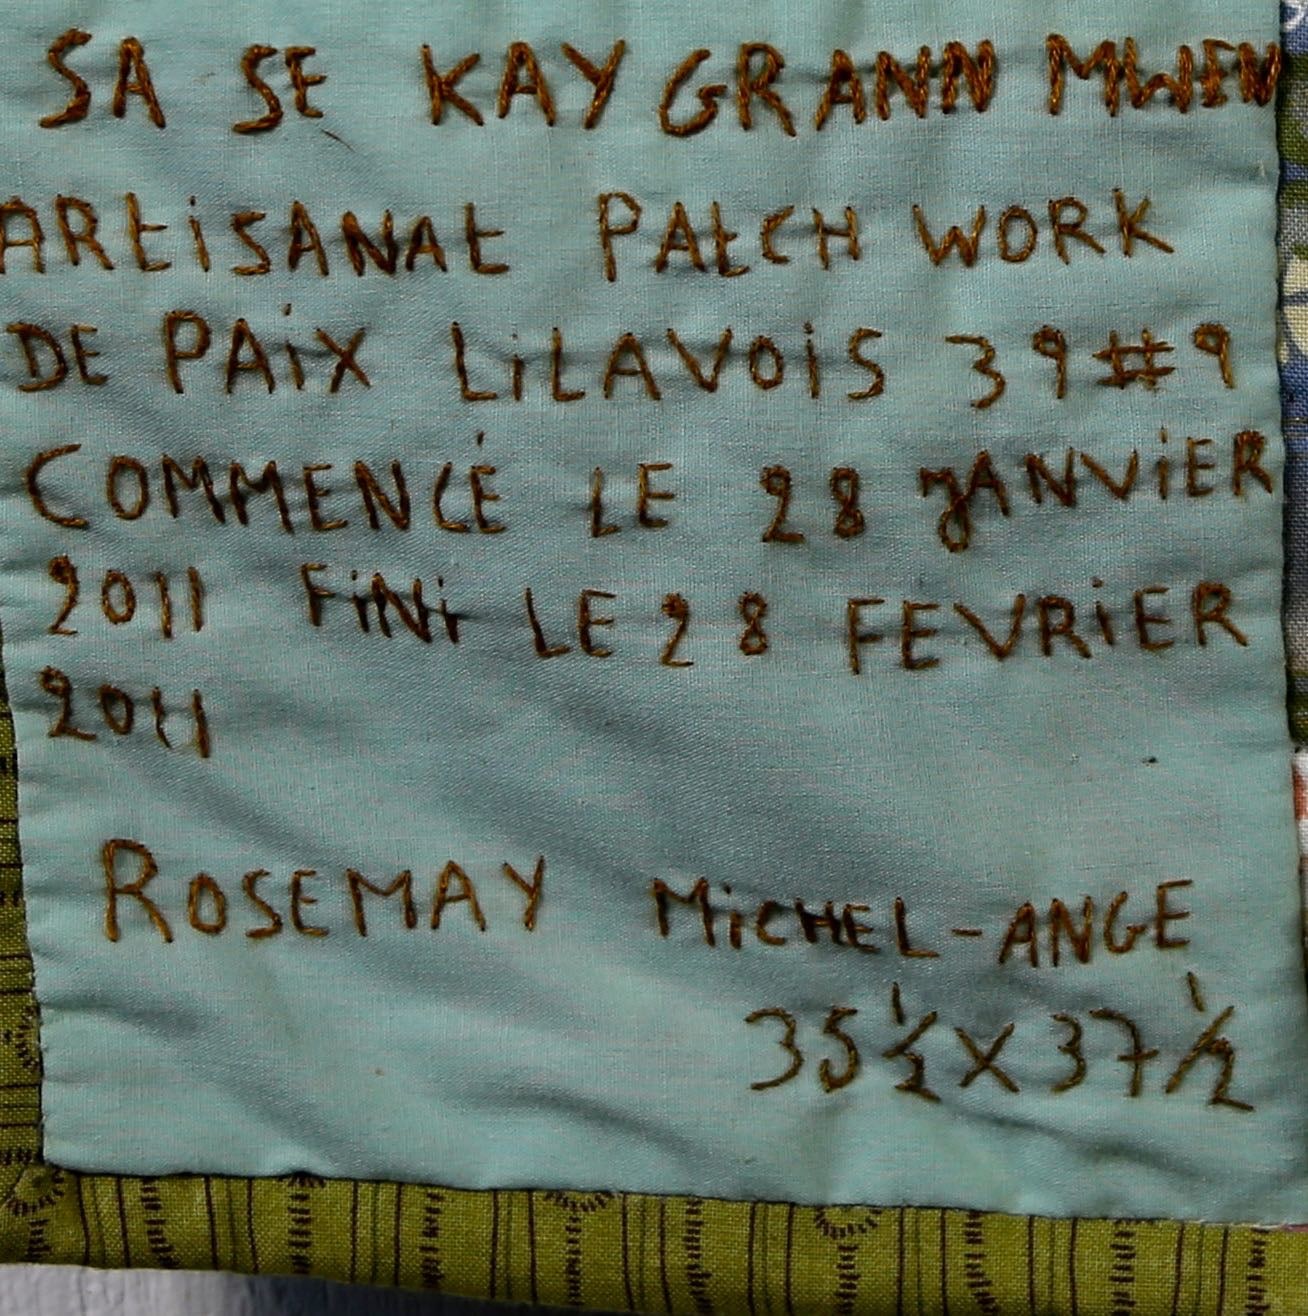 SA SE KAY GRANN MWEN
ARtiSANAt PAtCH WORK
DE PAiX LiLAVOiS 39#9
COMMENCÉ LE 28 JANViER
2011 FiNi LE 28 FEVRiER
2011
ROSEMAY MiCHEL-ANGE
35 1/2 X 37 1/2